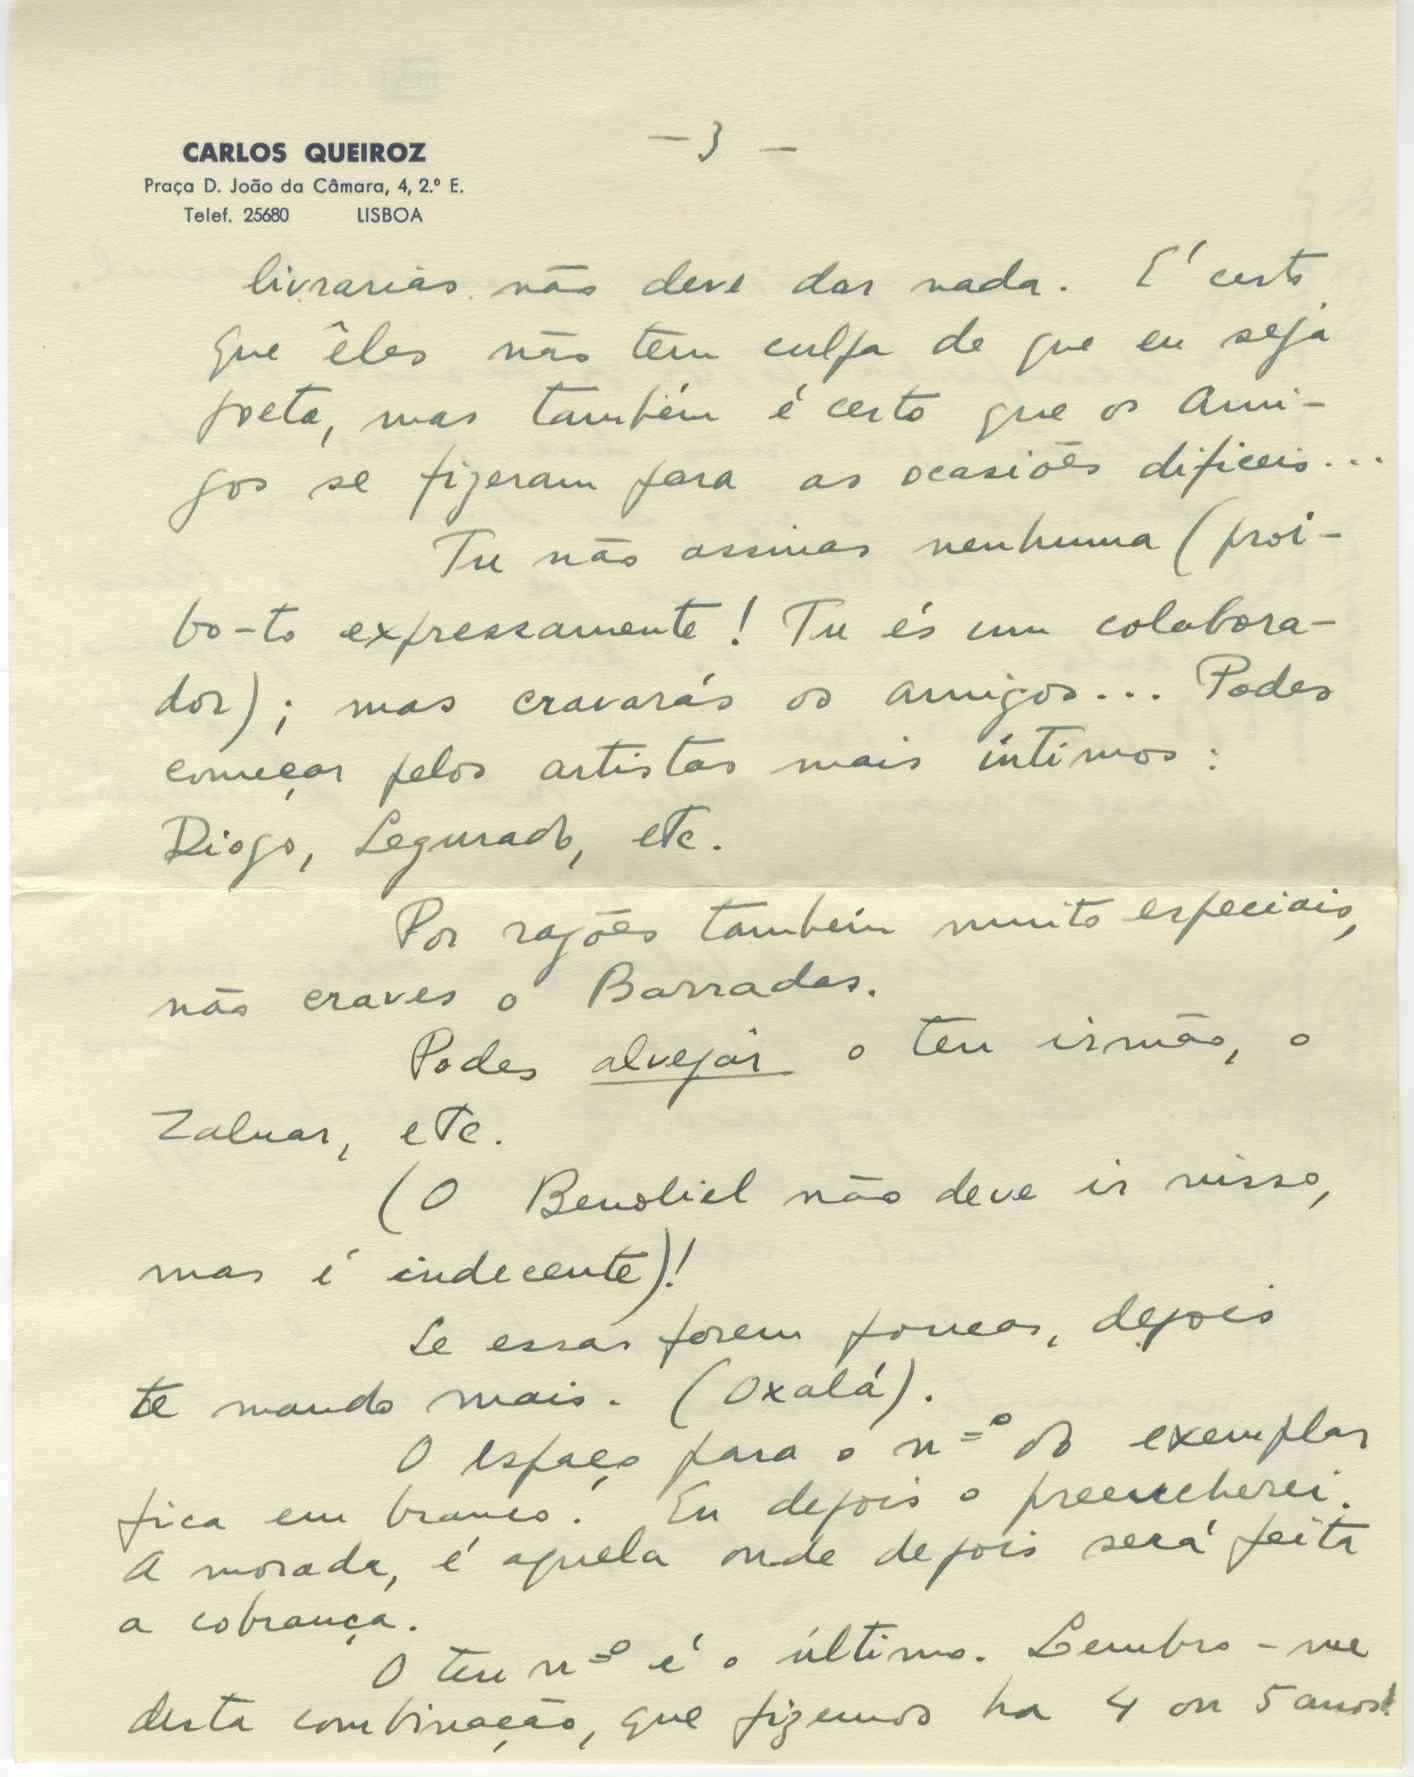 CARLOS QUEIROZ
Praça D. João da Câmara, 4, 2.º E.
Telef. 25680 LISBOA
— 3 —
livrarias não deve dar nada. É certo
que êles não tem culpa de que eu seja
poeta, mas também é certo que os Ami-
gos se fizeram para as ocasiões dificeis...
Tu não assinas nenhuma (proi-
bo-to expressamente! Tu és um colabora-
dor); mas cravarás os amigos... Podes
começar pelos artistas mais íntimos:
Diogo, Segurado, etc.
Por razões também muito especiais,
não craves o Barradas.
Podes alvejar o teu irmão, o
Zaluar, etc.
(O Benoliel não deve ir nisso,
mas é indecente)!
Se essas forem poucas, depois
te mando mais. (Oxalá).
O espaço para o nº do exemplar
fica em branco. Eu depois o preencherei.
A morada, é aquela onde depois será feita
a cobrança.
O teu nº é o último. Lembro-me
desta combinação, que fizemos ha 4 ou 5 anos!